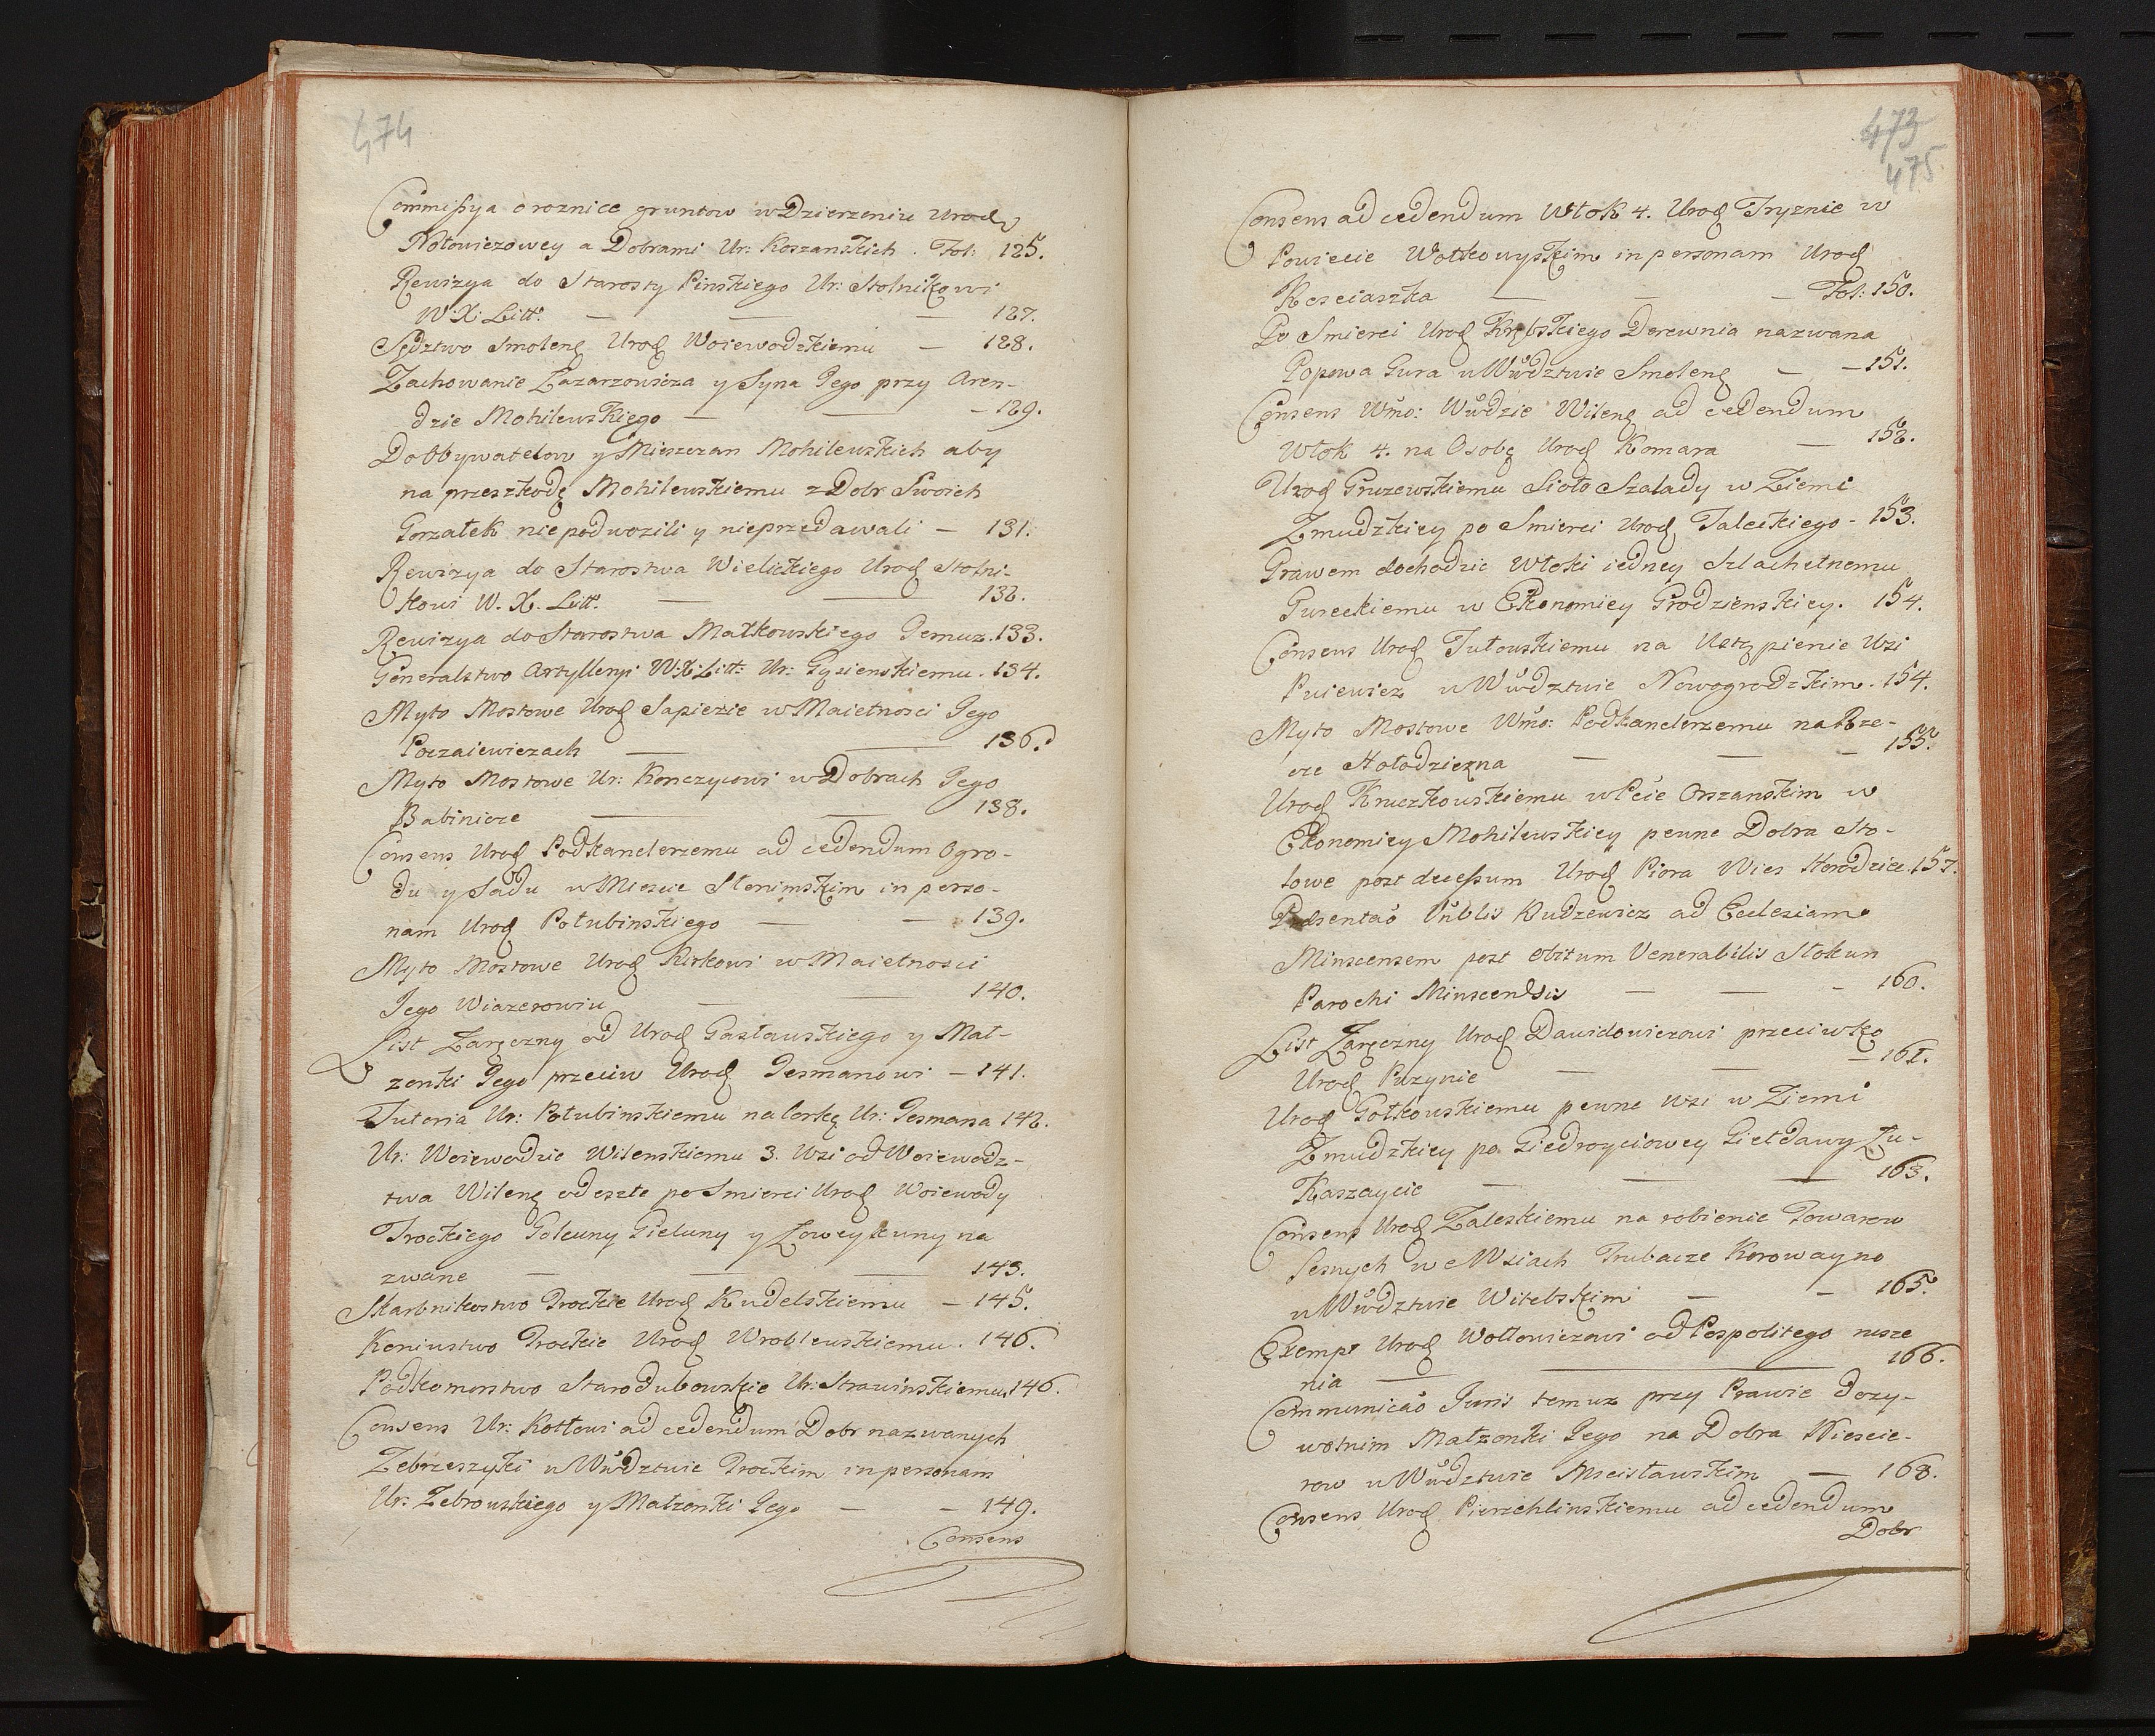 474
Commissya o roznice gruntow w Dzierzeniu Urod
Kołowiczowey a Dobrami Ur: Koszanskich. Fol: 125.
Rewizya do Starosty Pinskiego Ur: Stolnikowi
W. X. Litt: — — — 127.
Sędztwo Smolenꝭ Urodꝭ Woiewodzkiemu — 128.
Zachowanie Łazarzowicza y Syna Jego przy Aren-
dzie Mohilewskiego — — — 129.
Do Obywatelow y Mieszczan Mohilewskich aby
na przeszkodę Mohilewskiemu z Dobr Swoich
Gorzałek niepodwozili y nieprzedawali — 131.
Rewizya do Starostwa Wielickiego Urodꝭ Stolni-
kowi W. X. Litt. — — 132.
Rewizya do Starostwa Małkowskiego Temuz. 133.
Generalstwo Artylleryi W. X. Litt: Ur: Gąsienskiemu. 134.
Myto Mostowe Urodꝭ Sapiezie w Maietnosci Jego
Poczaiewiczach — — 136.
Myto Mostowe Ur: Konczycowi w Dobrach Jego
Babinicze — — 138.
Consens Urodꝭ Podkanclerzemu ad cedendum Ogro-
du y Sadu w Miescie Słonimskim in perso-
nam Urodꝭ Połubinskiego — — 139.
Myto Mostowe Urodꝭ Kirkowi w Maietnosci
Jego Wiazerowiu — — 140.
List Zaręczny od Urodꝭ Gasławskiego y Mał-
zonki Jego przeciw Urodꝭ Jesmanowi — 141.
Tutoria Ur: Połubinskiemu na Corkę Ur: Jesmana 142.
Ur: Woiewodzie Wilenskiemu 3. Wsi od Woiewodz-
twa Wilenꝭ odeszłe po Smierci Urodꝭ Woiewody
Trockiego Goleuny Gieluny y Łoweykuny na
zwane — — — 143.
Skarbnikostwo Trockie Urodꝭ Kudelskiemu — 145.
Koniustwo Trockie Urodꝭ Wroblewskiemu. 146.
Podkomorstwo Starodubowskie Ur: Strawinskiemu. 146.
Consens Ur: Kotłowi ad cedendum Dobr nazwanych
Zebrzeszyki w Wwdztwie Trockim in personam
Ur: Zebrowskiego y Małzonki Jego — — 149.
Consens
473
475
Consens ad cedendum Włok 4. Urodꝭ Tryznie w
Powiecie Wołkowyskim in personam Urodꝭ
Kosciaszka — — — Fol: 150.
Po Smierci Urodꝭ Krębskiego Derewnia nazwana
Popowa Gura w Wwdztwie Smolenꝭ — — 151.
Consens Wmo: Wwdzie Wilenꝭ ad cedendum
Włok 4. na Osobę Urodꝭ Komara — 152.
Urodꝭ Gruzewskiemu Sioło Szalady w Ziemi
Zmudzkiey po Smierci Urodꝭ Taleckiego - 153.
Prawem dochodzic Włoki iedney Szlachetnemu
Gureckiemu w Ekonomiey Grodzienskiey. 154.
Consens Urodꝭ Tułowskiemu na Ustąpienie Wsi
Puiewicz w Wwdztwie Nowogrodzkim. 154.
Myto Mostowe Wmo: Podkanclerzemu na Rze-
cze Hołodziezna — — — 155.
Urodꝭ Kruczkowskiemu w Pcie Orszanskim w
Ekonomiey Mohilewskiey pewne Dobra Sto-
łowe post decessum Urodꝭ Piora Wies Horodziec. 157.
Præsentao Vnblis Kudzewicz ad Ecclesiam
Minscensem post obitum Venerabilis Stokun
Parochi Minscensis — — — 160.
List Zaręczny Urodꝭ Dawidowiczowi przeciwko
Urodꝭ Puzynie — — — 161.
Urodꝭ Gołkowskiemu pewne Wsi w Ziemi
Zmudzkiey po Giedroyciowey Giełdawy Łu-
Kaszaycie — — — 163.
Consens Urodꝭ Zaleskiemu na robienie Towarow
Lesnych we Wsiach Trubacze Korowayno
w Wwdztwie Witebskim — — 165.
Exempt Urodꝭ Wołłowiczowi od Pospolitego rusze
nia — — 166.
Communicao Juris temuz przy Prawie dozy-
wotnim Małzonki Jego na Dobra Niescie-
row w Wwdztwie Mscisławskim — 168.
Consens Urodꝭ Pierzchlinskiemu ad cedendum
Dobr